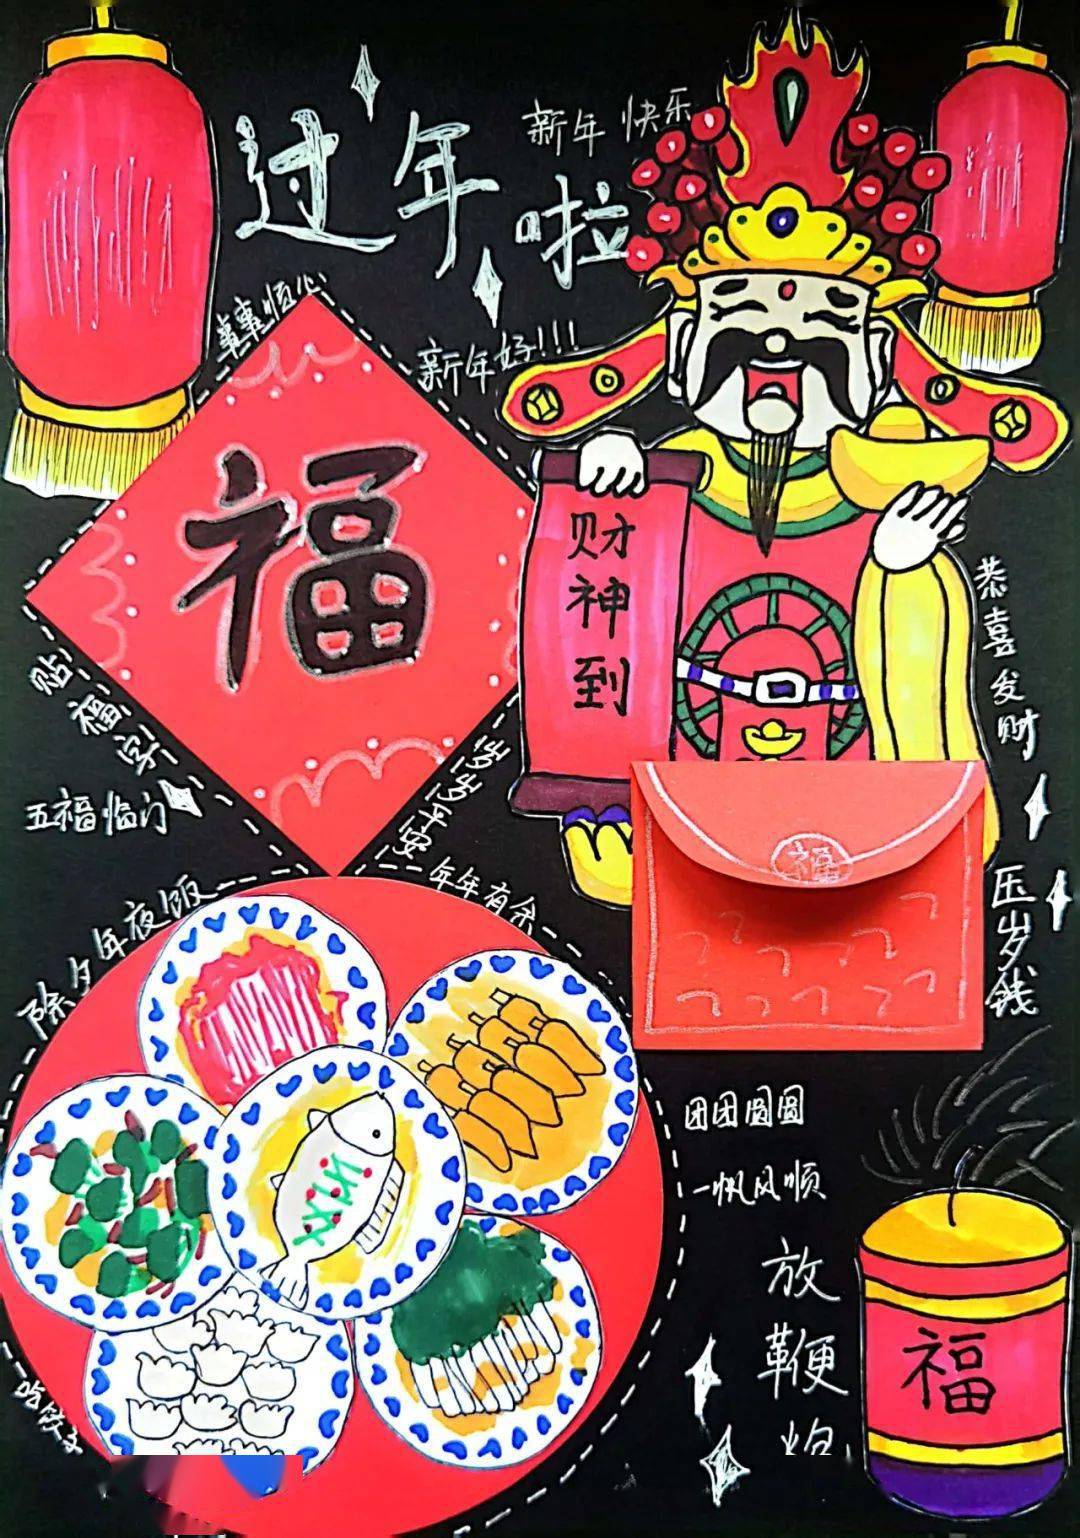 新年快乐
过年啦
事事顺心
新年好!!!
福
财神到
恭喜发财
贴福字
五福临门
岁岁平安
年年有余
福
压岁钱
除夕年夜饭
团团圆圆
一帆风顺
放鞭炮
福
吃饺子